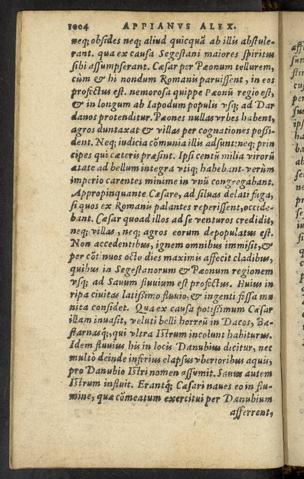 1004 APPIANVS ALEX.
neq; obsides neq; aliud quicquã ab illis abstule-
rant. qua ex causa Segestani maiores spiritus
sibi assumpserant. Cæsar per Pæonum tellurem,
cùm & hi nondum Romanis paruissent, in eos
profectus est. nemorosa quippe Pæonũ regio est,
& in longum ab Iapodum populis vsq; ad Dar
danos protenditur. Pæones nullas vrbes habent,
agros duntaxat & villas per cognationes possi-
dent. Neq; iudicia cõmunia illis adsunt: neq; prin
cipes qui cæteris præsint. Ipsi centũ milia virorũ
ætate ad bellum integra vtiq; habebant. verùm
imperio carentes minime in vnũ congregabant.
Appropinquante Cæsare, ad siluas delati fuga,
si quos ex Romanis palantes reperissent, occide-
bant. Cæsar quoad illos ad se venturos credidit,
neq; villas, neq; agros eorum depopulatus est.
Non accedentibus, ignem omnibus immisit, &
per cõtinuos octo dies maximis affecit cladibus,
quibus in Segestanorum & Pæonum regionem
vsq; ad Sauum fluuium est profectus. Huius in
ripa ciuitas latissimo fluuio, & ingenti fossa mu
nita considet. Qua ex causa potissimum Cæsar
illam inuasit, veluti belli horreũ in Dacos, Ba-
starnasq;, qui vltra Istrum incolunt habiturus.
Idem fluuius hic in locis Danubius dicitur, nec
multò deinde inferius elapsus vberioribus aquis,
pro Danubio Istri nomen assumit. Sauus autem
Istrum influit. Erantq; Cæsari naues eo in flu-
mine, quæ cõmeatum exercitui per Danubium
afferrent,